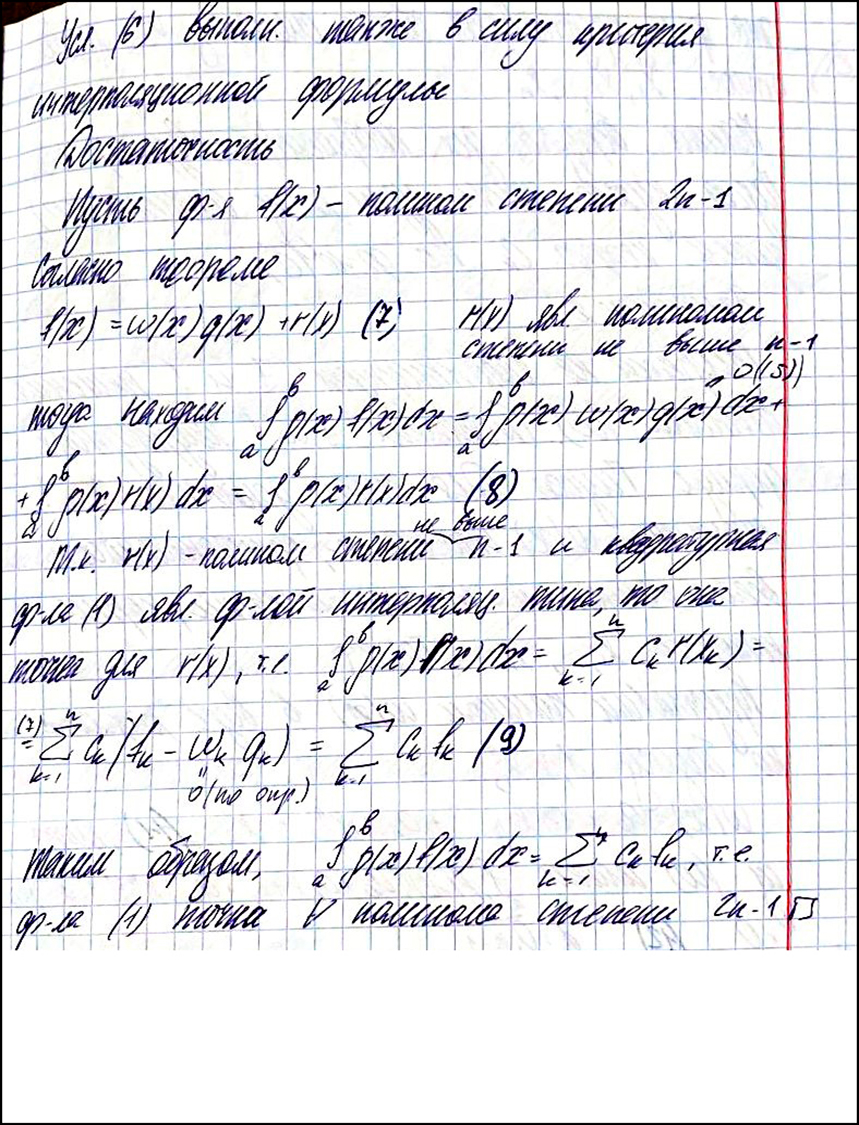 Усл. (6) выполн. также в силу критерия
интерполяционной формулы
Достаточность
Пусть ф-я f(x) – полином степени 2n-1
Согласно теореме
f(x) = ω(x) q(x) + r(x) (7) r(x) явл полиномом
степени не выше n-1
тогда находим ∫_a^b p(x) f(x) dx = ∫_a^b p(x) ω(x) q(x) dx + " 0 ((5))
+ ∫_a^b p(x) r(x) dx = ∫_a^b p(x) r(x) dx (8)
Т.к. r(x) - полином степени не выше n-1 и квадратурная
ф-ла (1) явл. ф-лой интерполяц. типа, то она
точна для r(x), т.е. ∫_a^b p(x) r(x) dx = ∑_{k=1}^n c_k r(x_k) =
(7)= ∑_{k=1}^n c_k (f_k - ω_k q_k) = ∑_{k=1}^n c_k f_k (9)
" 0 (по опр.)
Таким образом, ∫_a^b p(x) f(x) dx = ∑_{k=1}^n c_k f_k, т.е.
ф-ла (1) точна ∀ полинома степени 2n-1